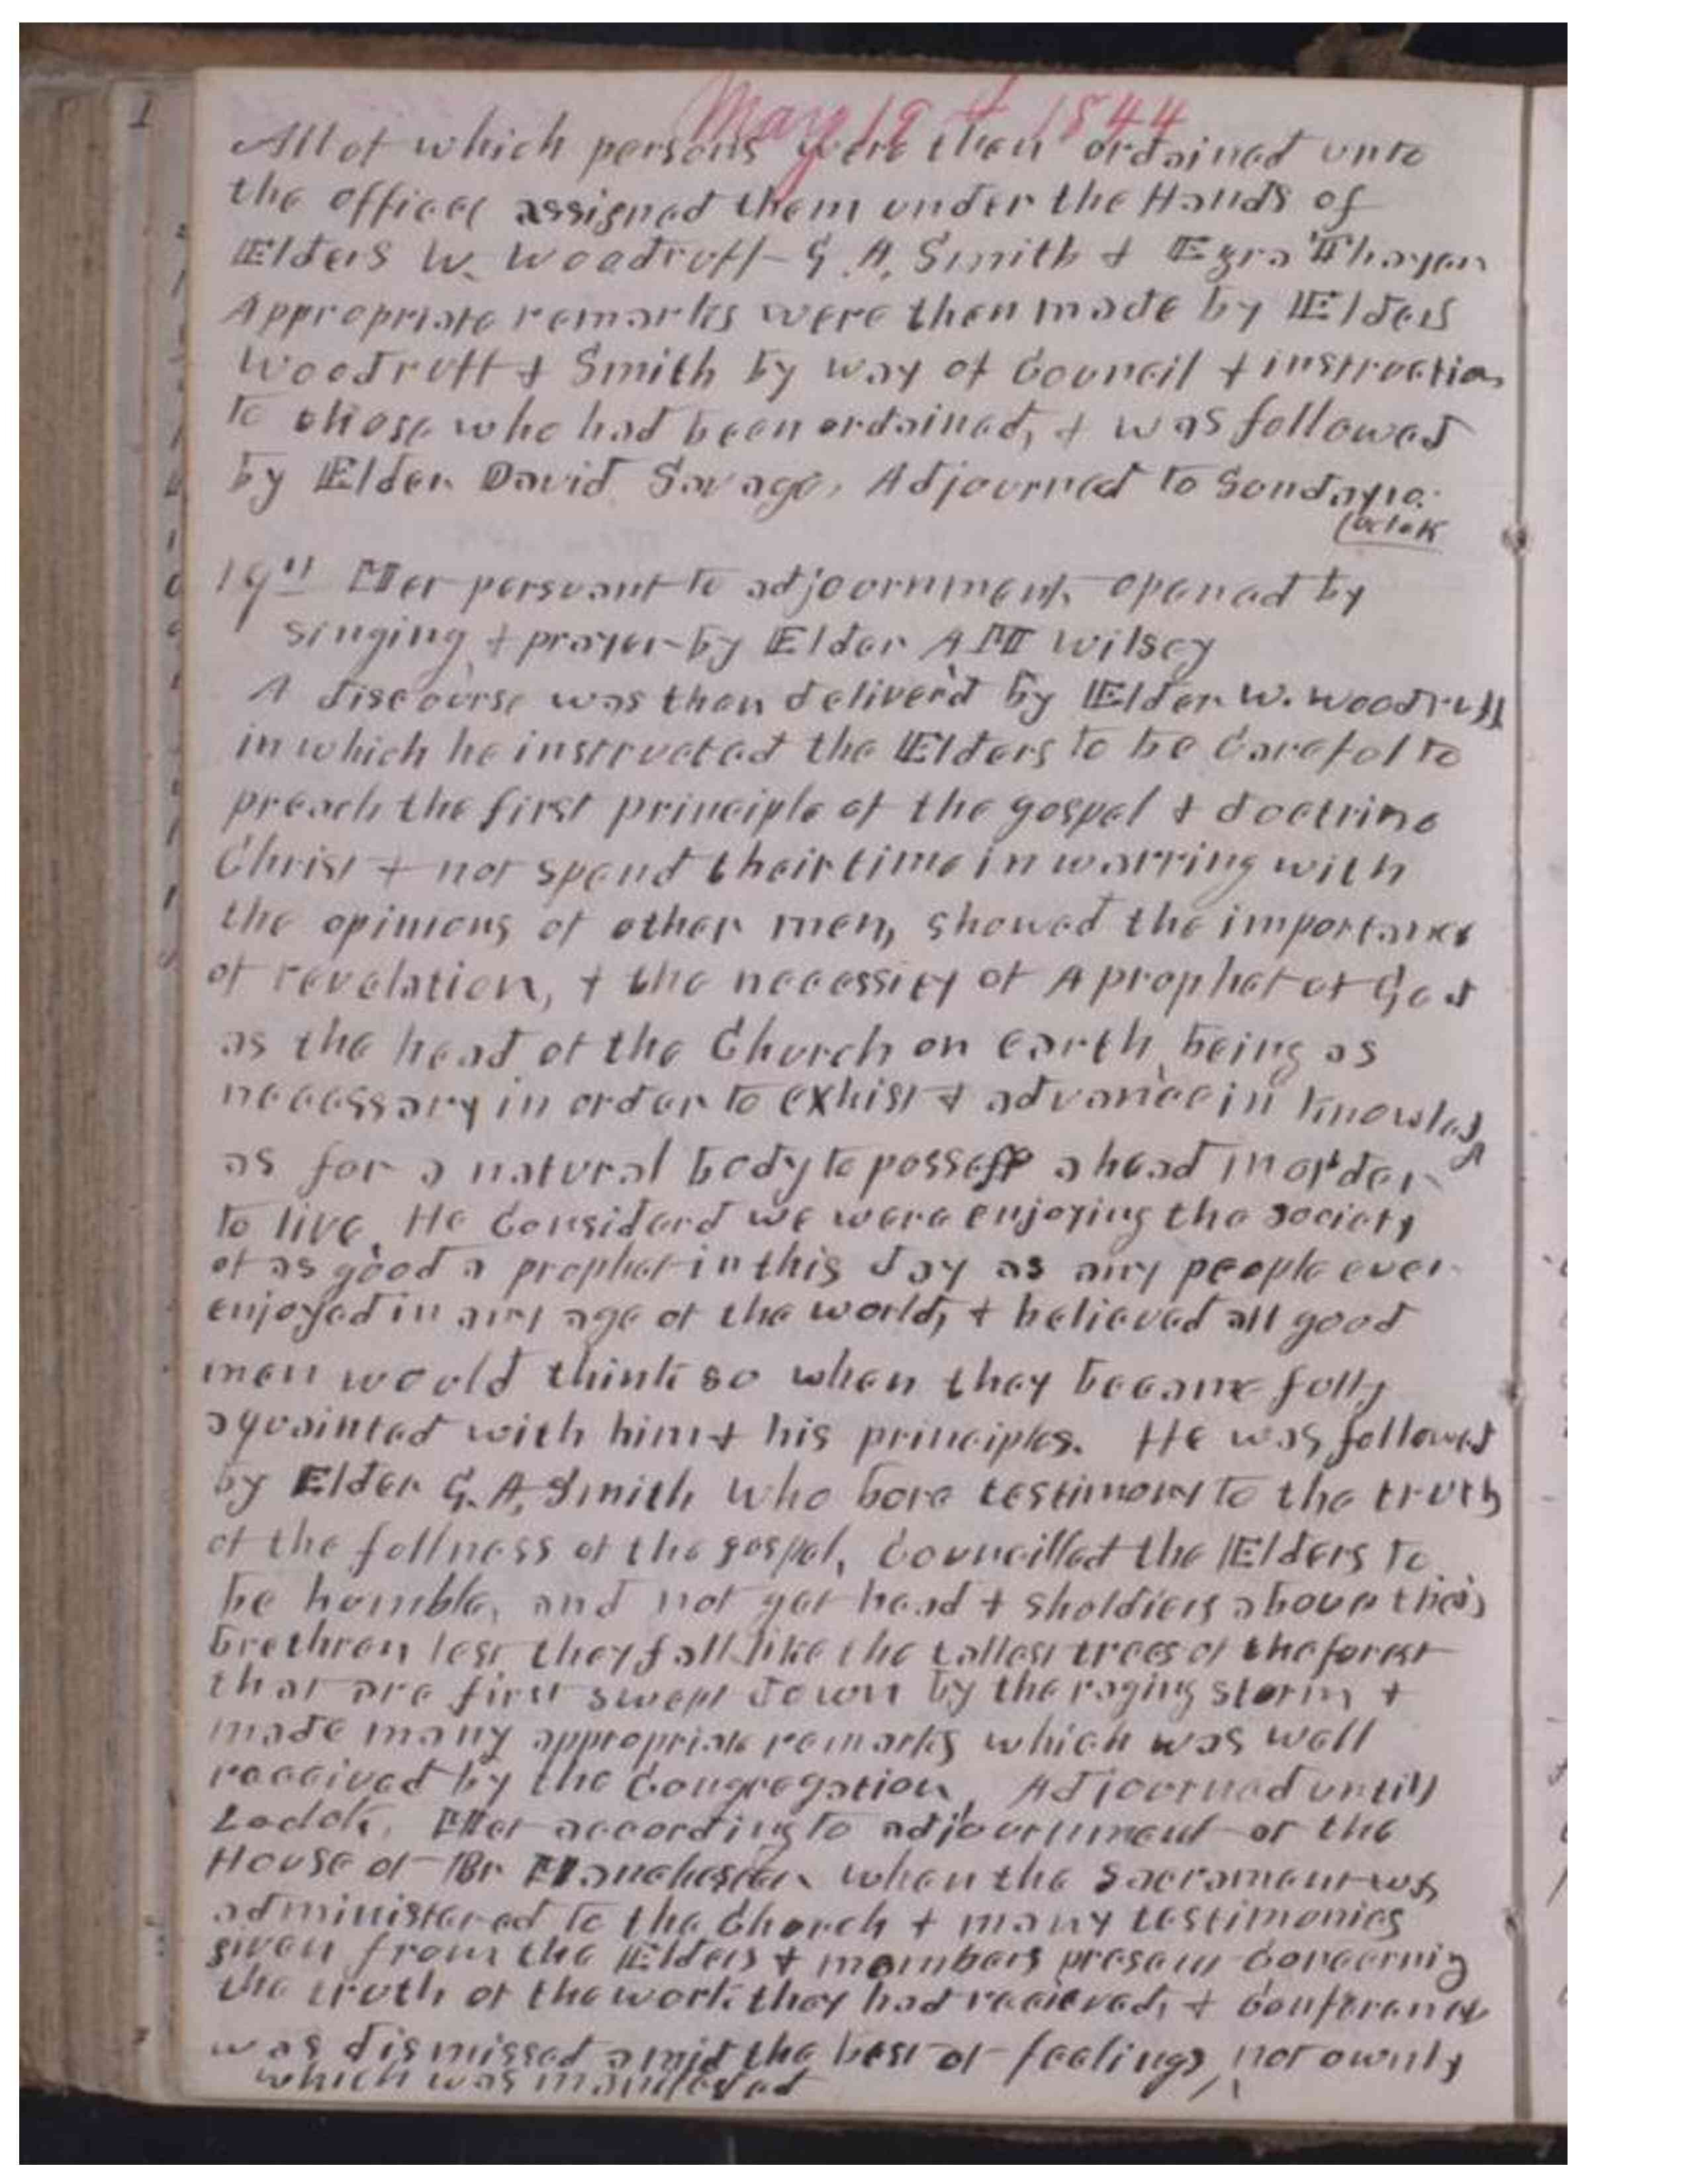 May 19th 1844
All of which persons were then ordained unto
the offices assigned them under the Hands of
Elders W. Woodruff G. A. Smith & Ezra Thayer
Appropriate remarks were then made by Elders
Woodruff & Smith by way of Council & instruction
to those who had been ordained, & was followed
by Elder David Savage, Adjourned to Sunday 10.
oclok
19th Met persuant to adjournment, opened by
singing & prayer by Elder A M Wilsey
A discourse was then deliver'd by Elder W. Woodruff
in which he instructed the Elders to be Careful to
preach the first principle of the gospel & doctrine
Christ & not spend their time in warring with
the opinions of other men, showed the importance
of revelation, & the necessity of A prophet of God
as the head of the Church on earth being as
necessary in order to exhist & advance in knowledg
as for a natural body to possess a head in order
to live. He Considerd we were enjoying the society
of as good a prophet in this day as any people ever
enjoyed in any age of the world, & believed all good
men would think so when they became fully
aquainted with him & his principles. He was followed
by Elder G. A. Smith who bore testimony to the truth
of the fullness of the gospel, Councilled the Elders to
be humble, and not get head & sholdiers above their
brethren lest they fall like the tallest trees of the forest
that are first swept down by the raging storm &
made many appropriate remarks which was well
received by the Congregation, Adjourned untill
2 oclok. Met according to adjournment at the
House of Br Manchester when the Sacrament was
administered to the Church & many testimonies
given from the Elders & members present Concerning
the truth of the work they had recieved, & Conference
was dismissed amid the best of feelings, not ownly
which was manifested